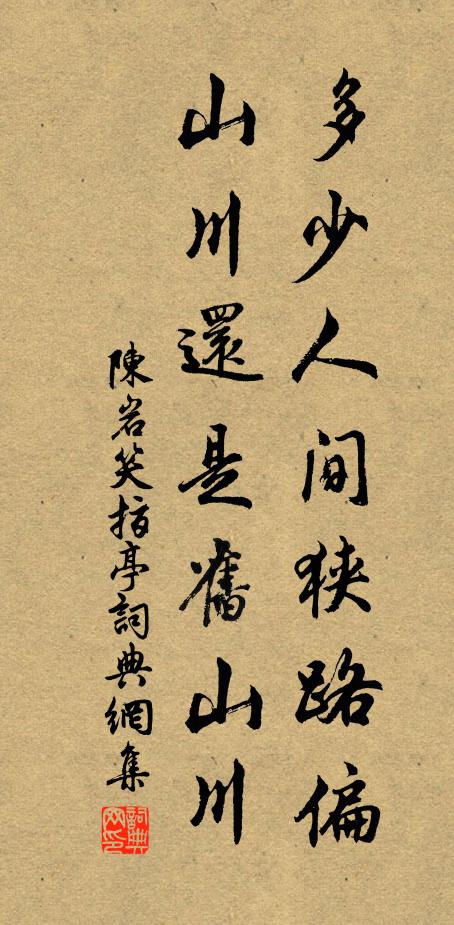 多少人间狭路偏
山川還是舊山川
陳岩笑指亭詞典網集
詞典网印